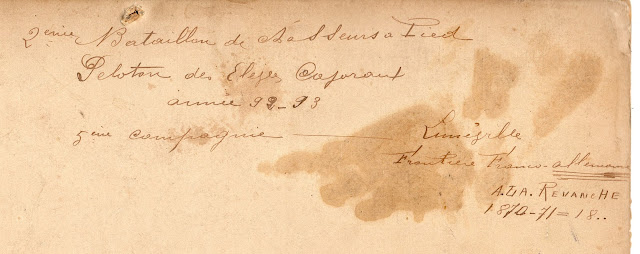 2ème Bataillon de Chasseurs a Pied
Peloton des Eleves Caporaux
année 92-93
5ème Compagnie — Lunéville
Frontiere Franco-allemande
A. LA. REVANCHE
1870-71=18..